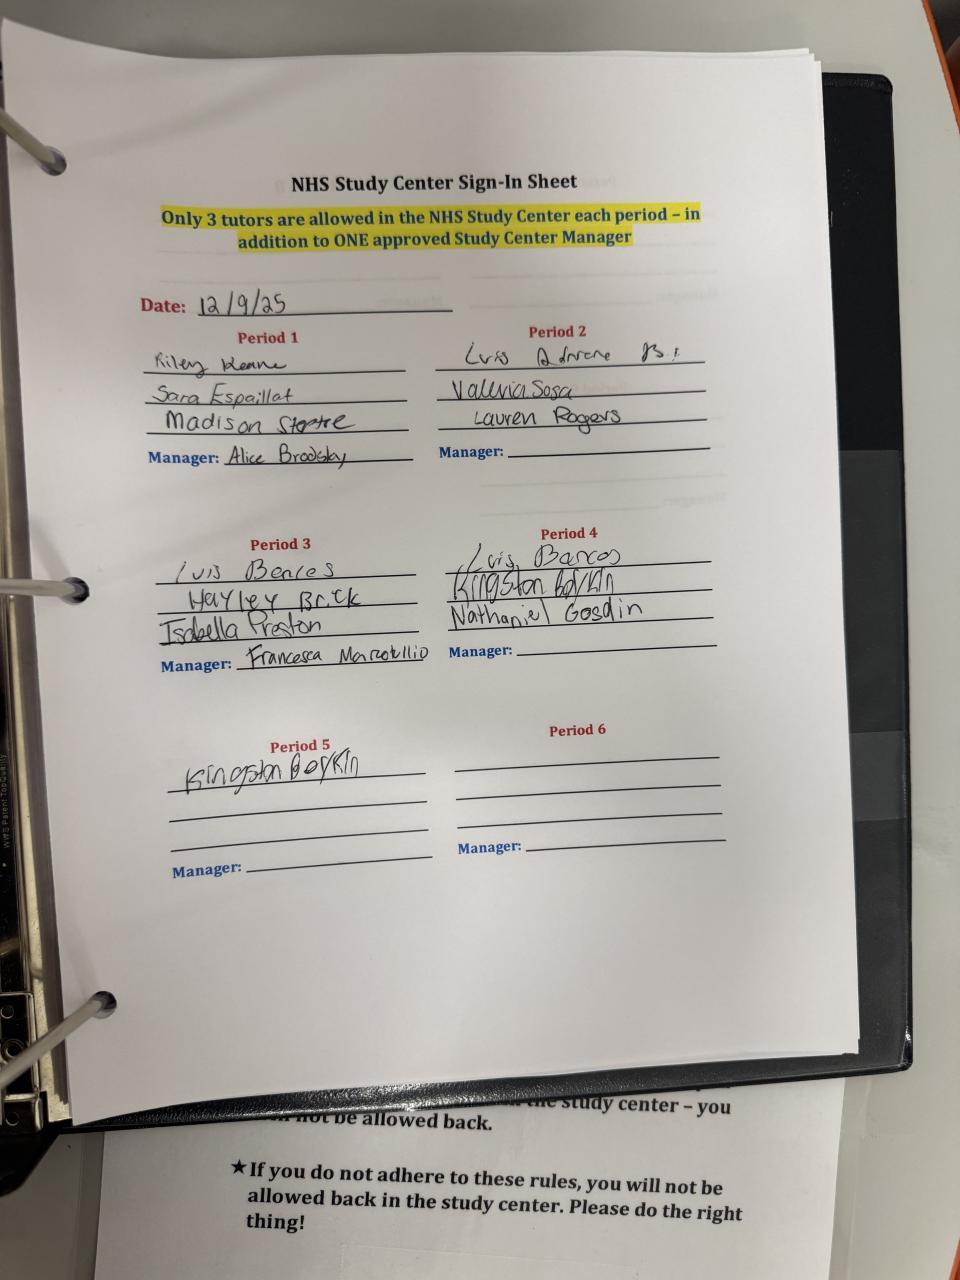 NHS Study Center Sign-In Sheet
Only 3 tutors are allowed in the NHS Study Center each period – in
addition to ONE approved Study Center Manager
Date: 12/9/25
Period 1
Riley Keane
Sara Espaillat
Madison
Manager: Alice Brodsky
Period 2
Luis B.
Valeria Sosa
Lauren Rogers
Manager:
Period 3
Luis
Hayley Brick
Isabella Preston
Manager: Francesca Marcotullio
Period 4
Luis Barcos
Kingston Boykin
Nathaniel Gosdin
Manager:
Period 5
Kingston Boykin
Manager:
Period 6
Manager:
the study center – you
not be allowed back.
★If you do not adhere to these rules, you will not be
allowed back in the study center. Please do the right
thing!